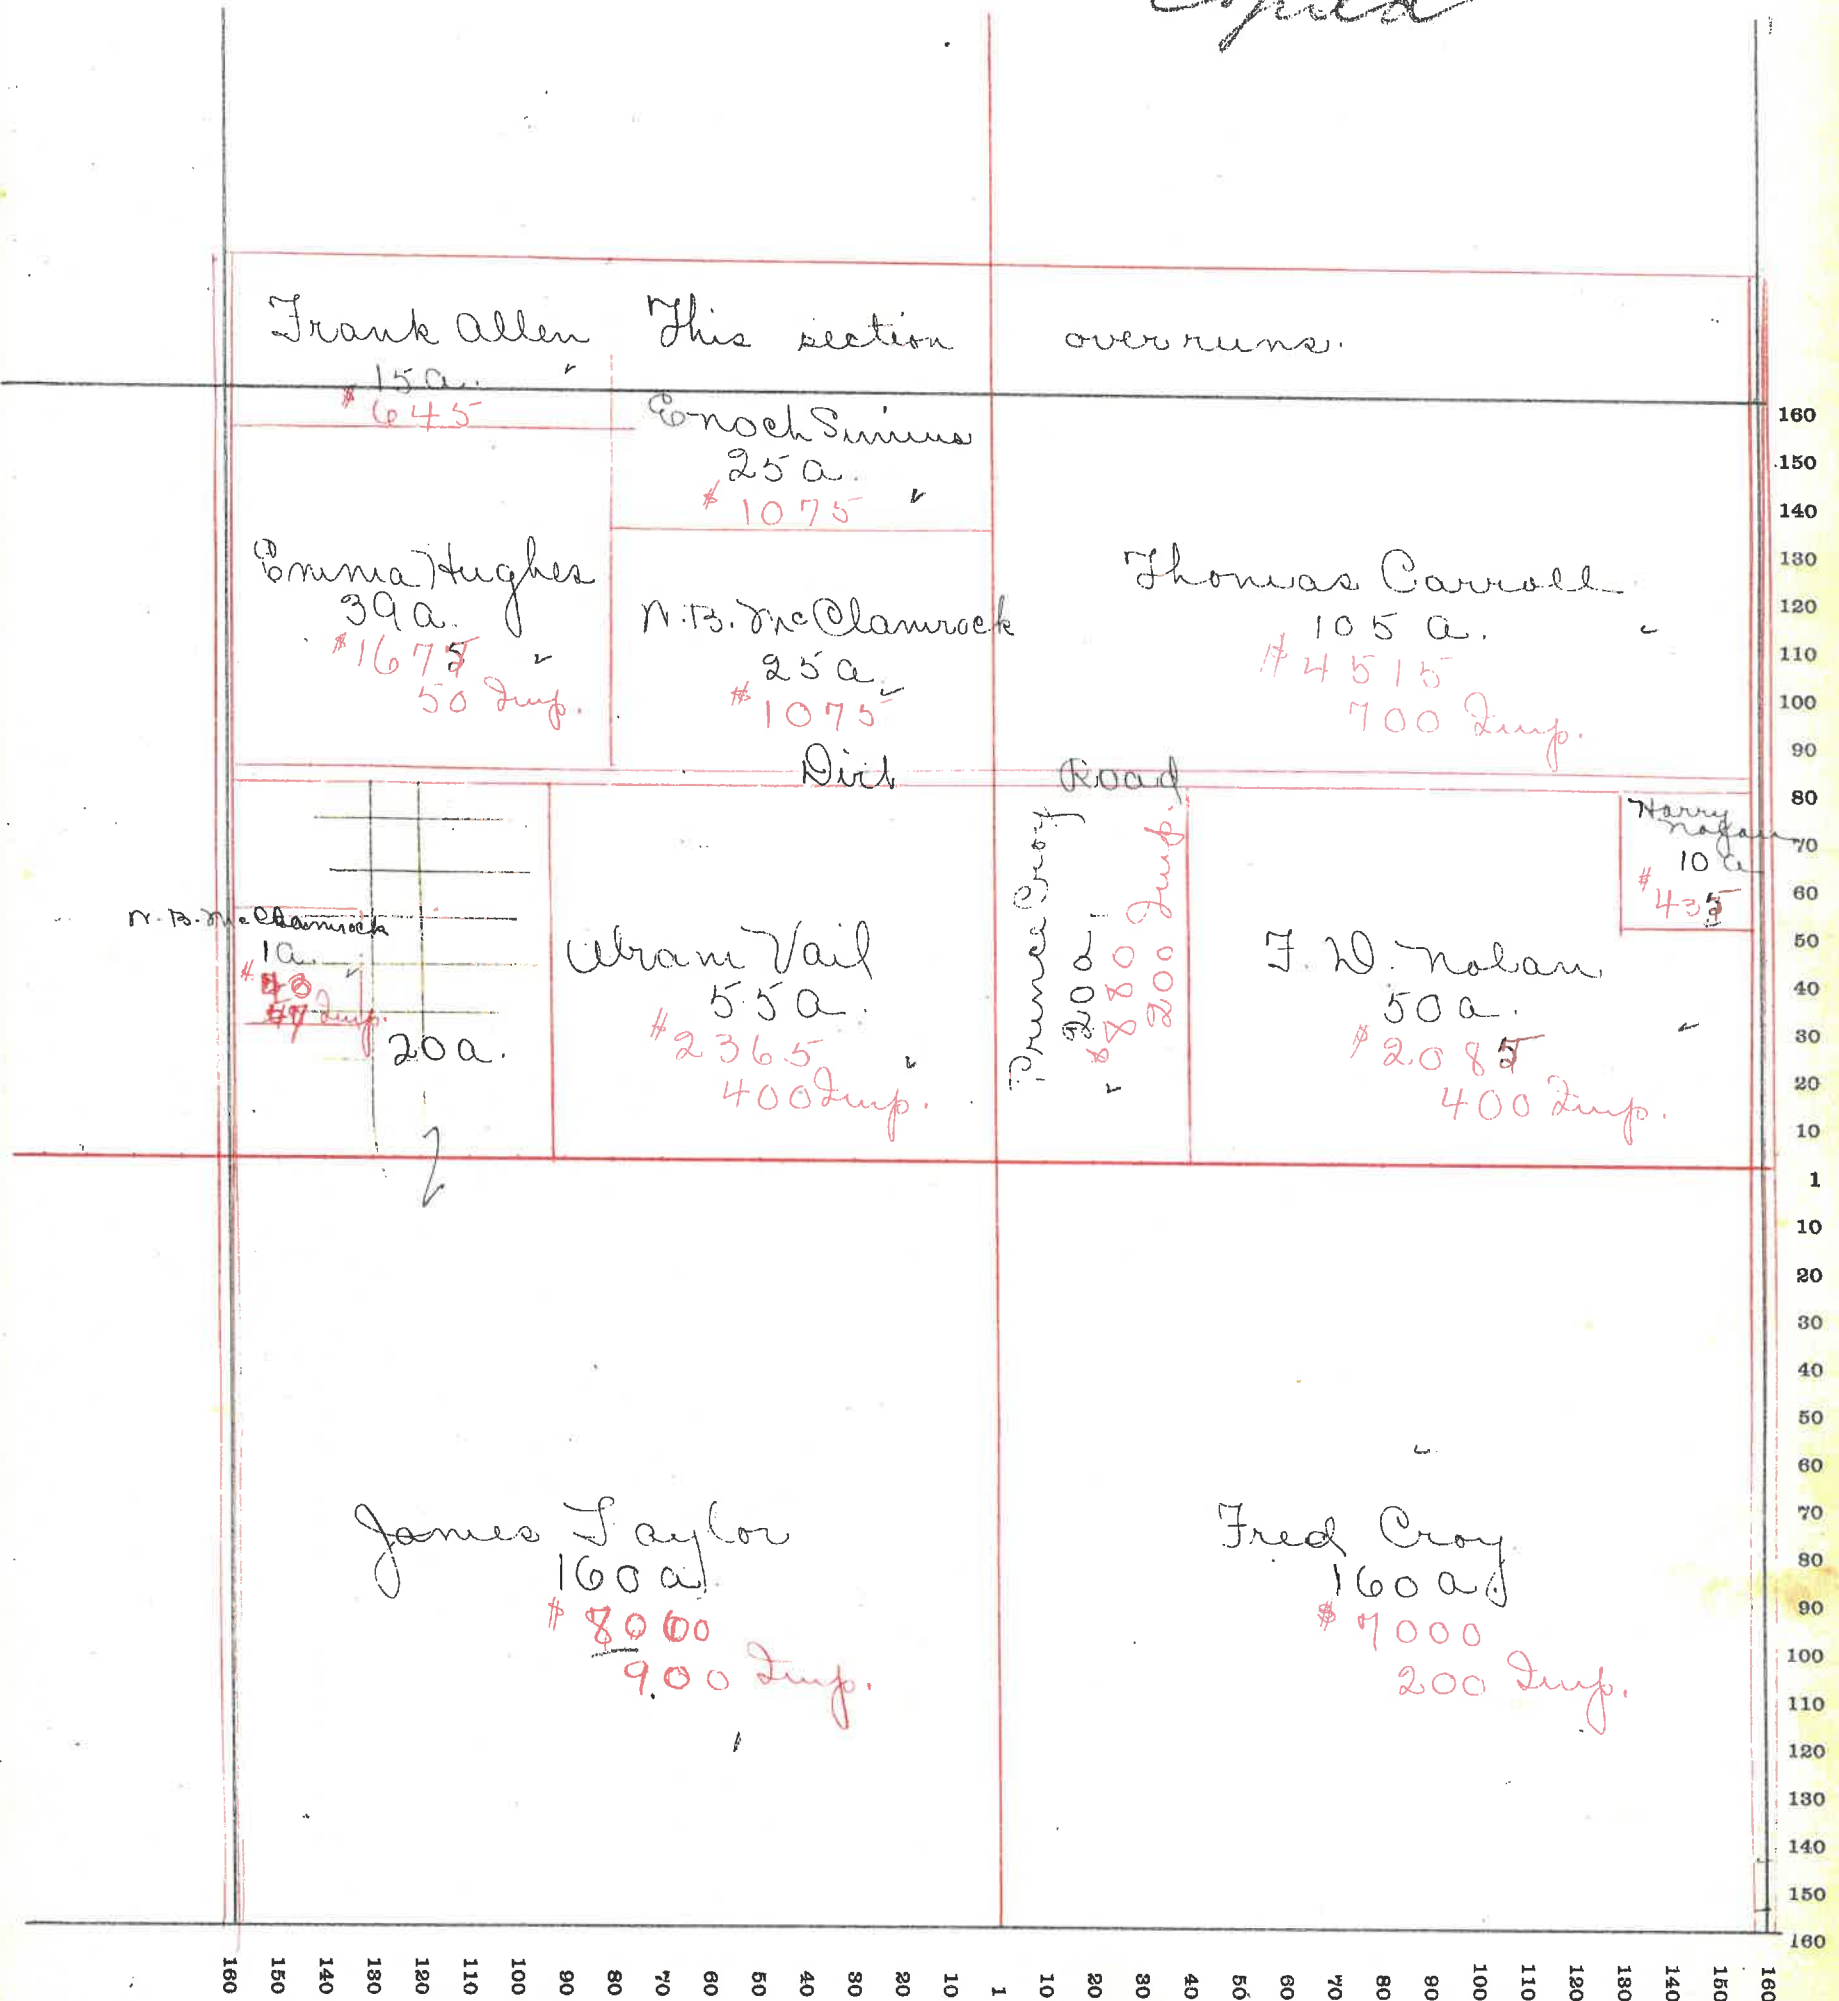 Copied
Frank Allen
15 a.
$ 645
This section overruns.
Enoch Simms
25 a.
$ 1075
Emma Hughes
39 a.
$ 1675
50 Imp.
N. B. McClamrock
25 a.
$ 1075
Thomas Carroll
105 a.
$ 4515
700 Imp.
Dirt Road
N. B. McClamrock
1 a.
$ 43
Imp.
20 a.
Abram Vail
55 a.
$ 2365
400 Imp.
Prince Croy
20 a.
$ 880
200 Imp.
F. D. Nolan
50 a.
$ 2085
400 Imp.
Harry
10 a
$ 435
James Taylor
160 a.
$ 8000
900 Imp.
Fred Croy
160 a.
$ 7000
200 Imp.
160
150
140
130
120
110
100
90
80
70
60
50
40
30
20
10
1
10
20
30
40
50
60
70
80
90
100
110
120
130
140
150
160
160 150 140 130 120 110 100 90 80 70 60 50 40 30 20 10 1 10 20 30 40 50 60 70 80 90 100 110 120 130 140 150 160